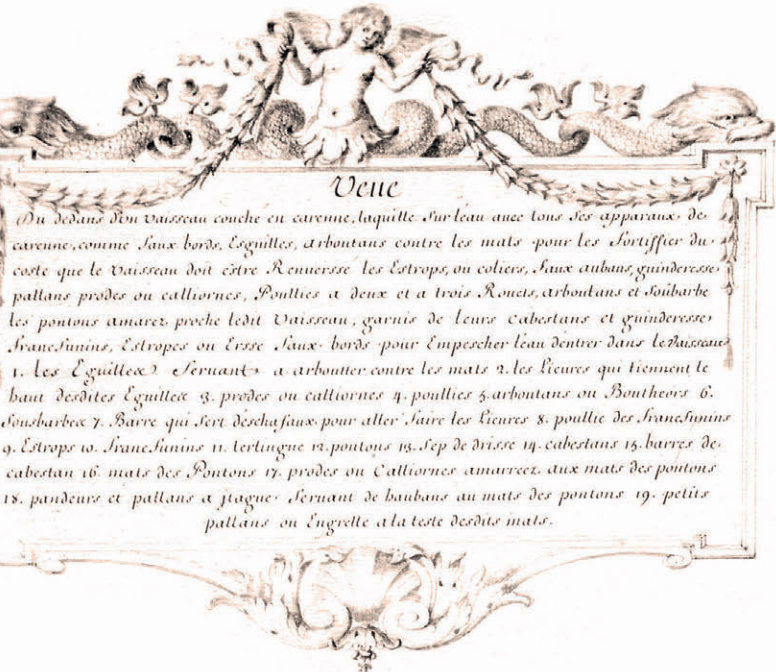 Veue
Du dedans d'un vaisseau couche en carenne, laquille sur l'eau avec tous ses apparaux de
carenne, comme faux bords, Esguilles, arboutans contre les mats pour les fortiffier du
coste que le vaisseau doit estre Renversse les Estrops, ou coliers, faux aubans, guinderesse
pallans prodes ou calliornes, Poullies a deux et a trois Rouets, arboutans et soubarbe
les pontons amarez proche ledit vaisseau, garnis de leurs cabestans et guinderesse
francfunins, Estropes ou Ersse faux bords pour Empescher l'eau dentrer dans le vaisseau
1. les Eguilles Servant a arboutter contre les mats 2. les lieures qui tiennent le
haut desdites Eguilles 3. prodes ou calliornes 4. poullies 5. arboutans ou Boutheors 6.
Sousbarbes 7. Barre qui sert deschafaux pour aller faire les lieures 8. poullie des francfunins
9. Estrops 10. francfunins 11. lertingue 12. pontons 13. sep de drisse 14. cabestans 15. barres de
cabestan 16. mats des Pontons 17. prodes ou Calliornes amarreez aux mats des pontons
18. pandeurs et pallans a jtague servant de haubans au mats des pontons 19. petits
pallans ou Engrelle a la teste desdits mats.